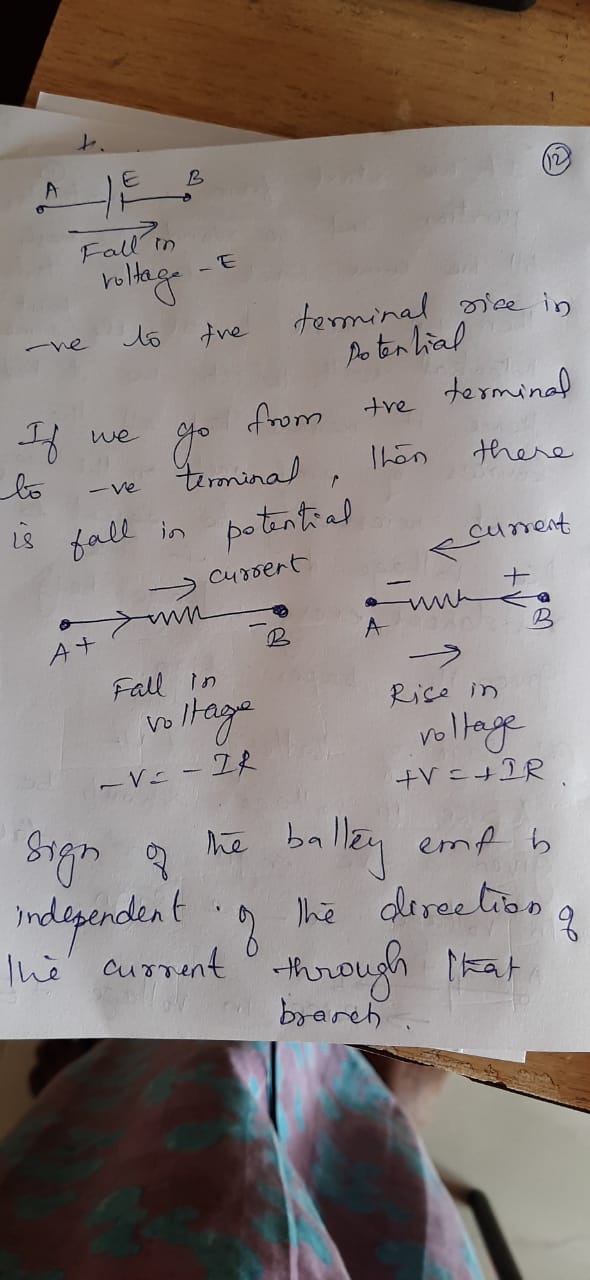 12
A E B
Fall in
voltage - E
-ve to +ve terminal rise in
Potential
If we go from +ve terminal
to -ve terminal, then there
is fall in potential
current
current
A + - B
- +
A B
Fall in
voltage
-V = - IR
Rise in
voltage
+V = + IR.
Sign of the battey emf is
independent of the direction of
the current through that
branch.